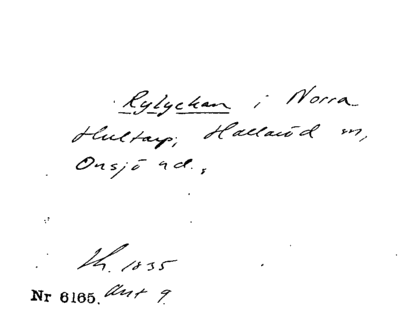 Rylyckan i Norra
Hultarp, Hallaröd sn,
Onsjö hd.,
Lh. 1835
Nr 6165. Akt 9